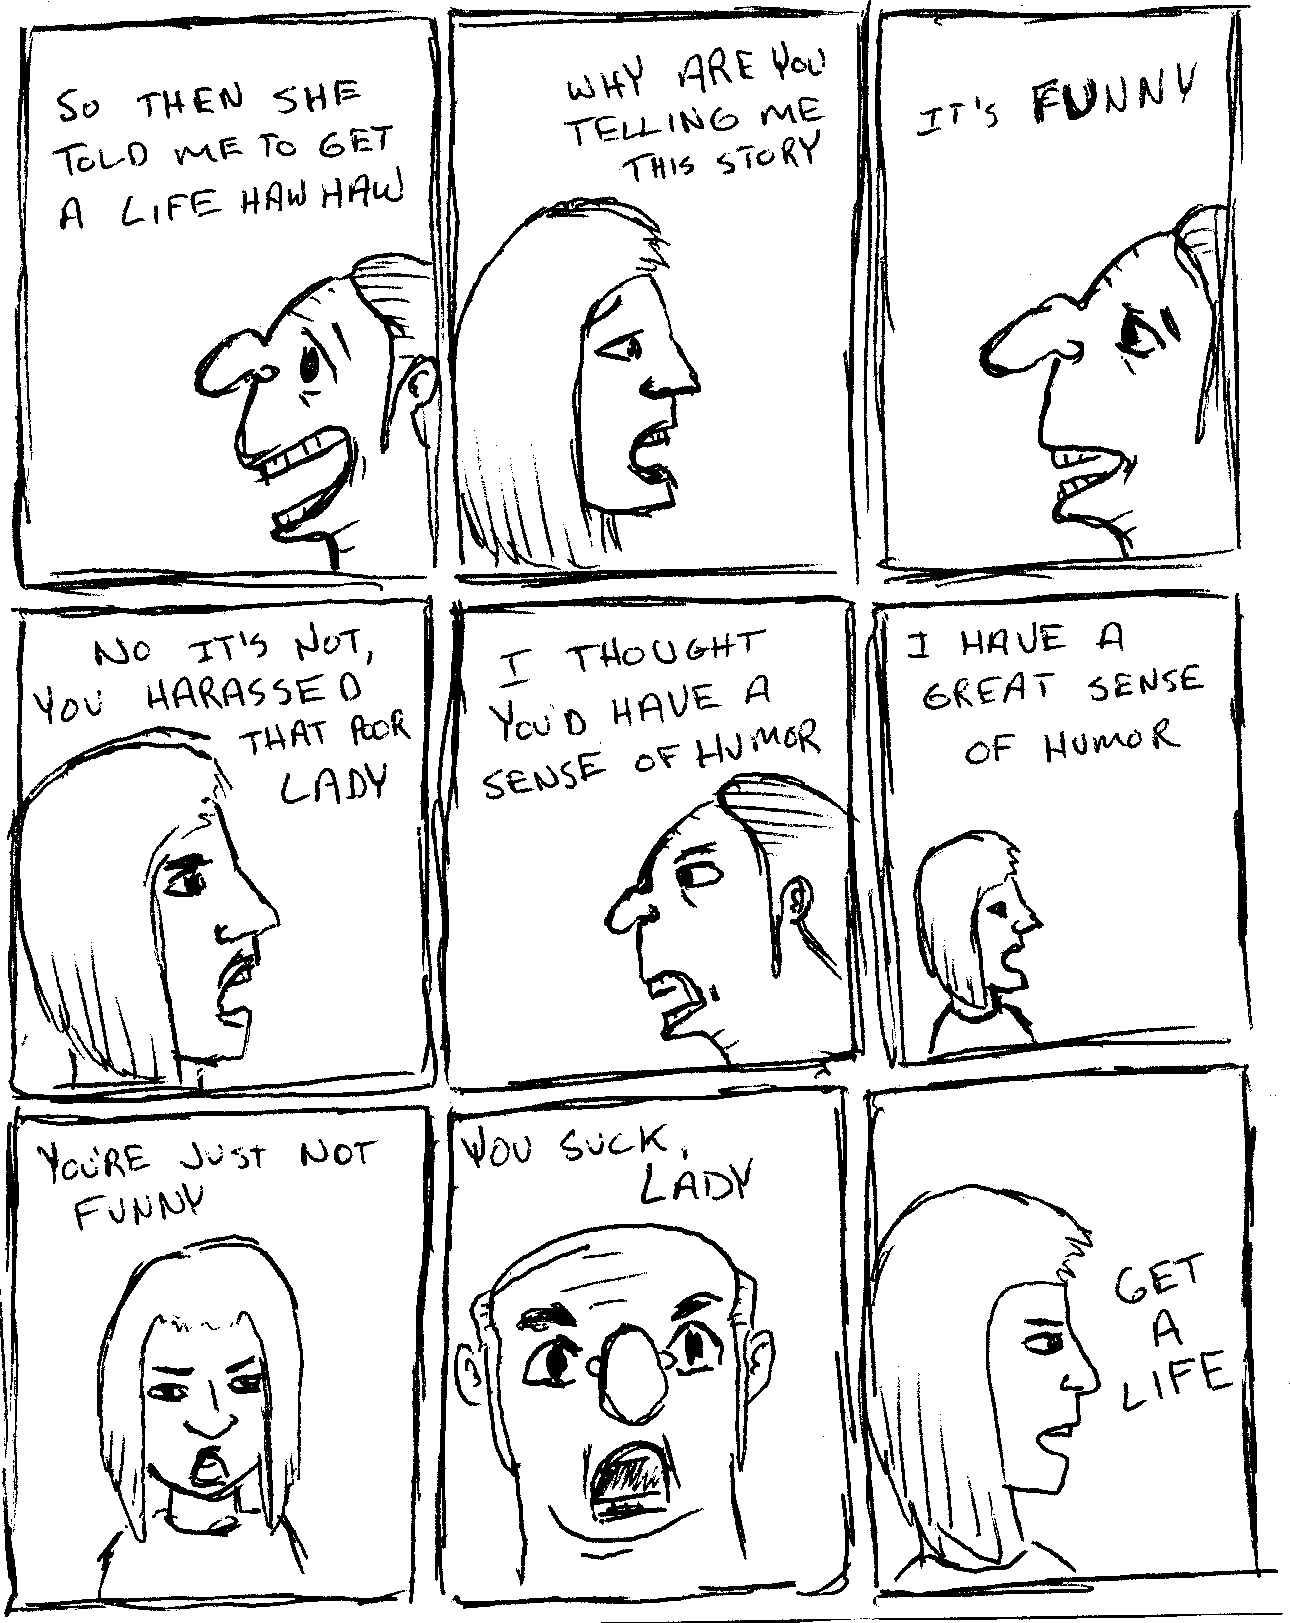 SO THEN SHE
TOLD ME TO GET
A LIFE HAW HAW
WHY ARE YOU
TELLING ME
THIS STORY
IT'S FUNNY
NO IT'S NOT,
YOU HARASSED
THAT POOR
LADY
I THOUGHT
YOU'D HAVE A
SENSE OF HUMOR
I HAVE A
GREAT SENSE
OF HUMOR
YOU'RE JUST NOT
FUNNY
YOU SUCK,
LADY
GET
A
LIFE